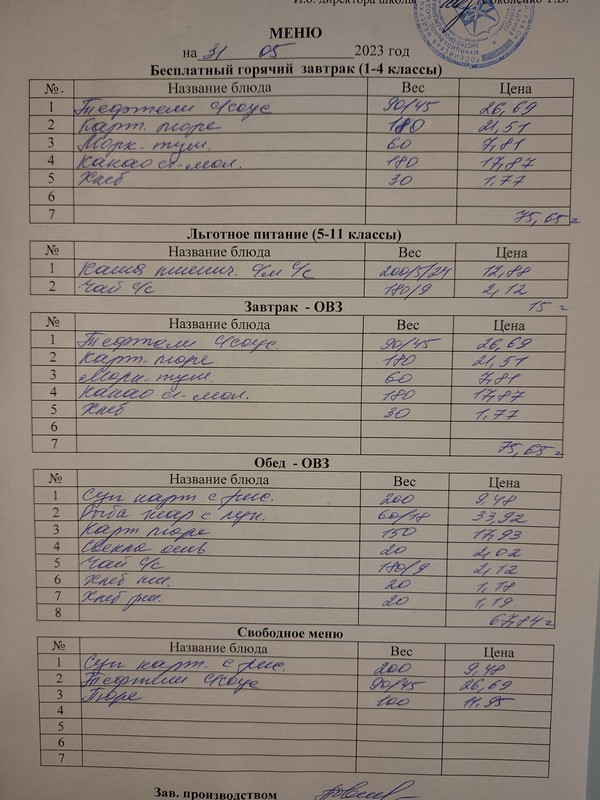 И.о. директора школы
МЕНЮ
на 31 05 2023 год
Бесплатный горячий завтрак (1-4 классы)
№ Название блюда Вес Цена
1 Тефтели с/соус 90/45 26,69
2 Карт. пюре 180 21,51
3 Морк. туш. 60 7,81
4 Какао сг-мол. 180 17,87
5 Хлеб 30 1,77
6
7 75,65
Льготное питание (5-11 классы)
№ Название блюда Вес Цена
1 Каша пшенич. с/м с/с 200/5/24 12,88
2 Чай с/с 180/9 2,12
15 г
Завтрак - ОВЗ
№ Название блюда Вес Цена
1 Тефтели с/соус. 90/45 26,69
2 Карт. пюре 180 21,51
3 Морк. туш. 60 7,81
4 Какао сг-мол. 180 17,87
5 Хлеб 30 1,77
6
7 75,65
Обед - ОВЗ
№ Название блюда Вес Цена
1 Суп карт с рис. 200 9,48
2 Рыба жар с лук. 60/18 33,92
3 Карт пюре 150 17,93
4 Свекла 20 2,02
5 Чай с/с 180/9 2,12
6 Хлеб пш. 20 1,18
7 Хлеб рж. 20 1,19
8 67,84
Свободное меню
№ Название блюда Вес Цена
1 Суп карт. с рис. 200 9,48
2 Тефтели с/соус 90/45 26,69
3 Пюре 100 11,95
4
5
6
7
Зав. производством